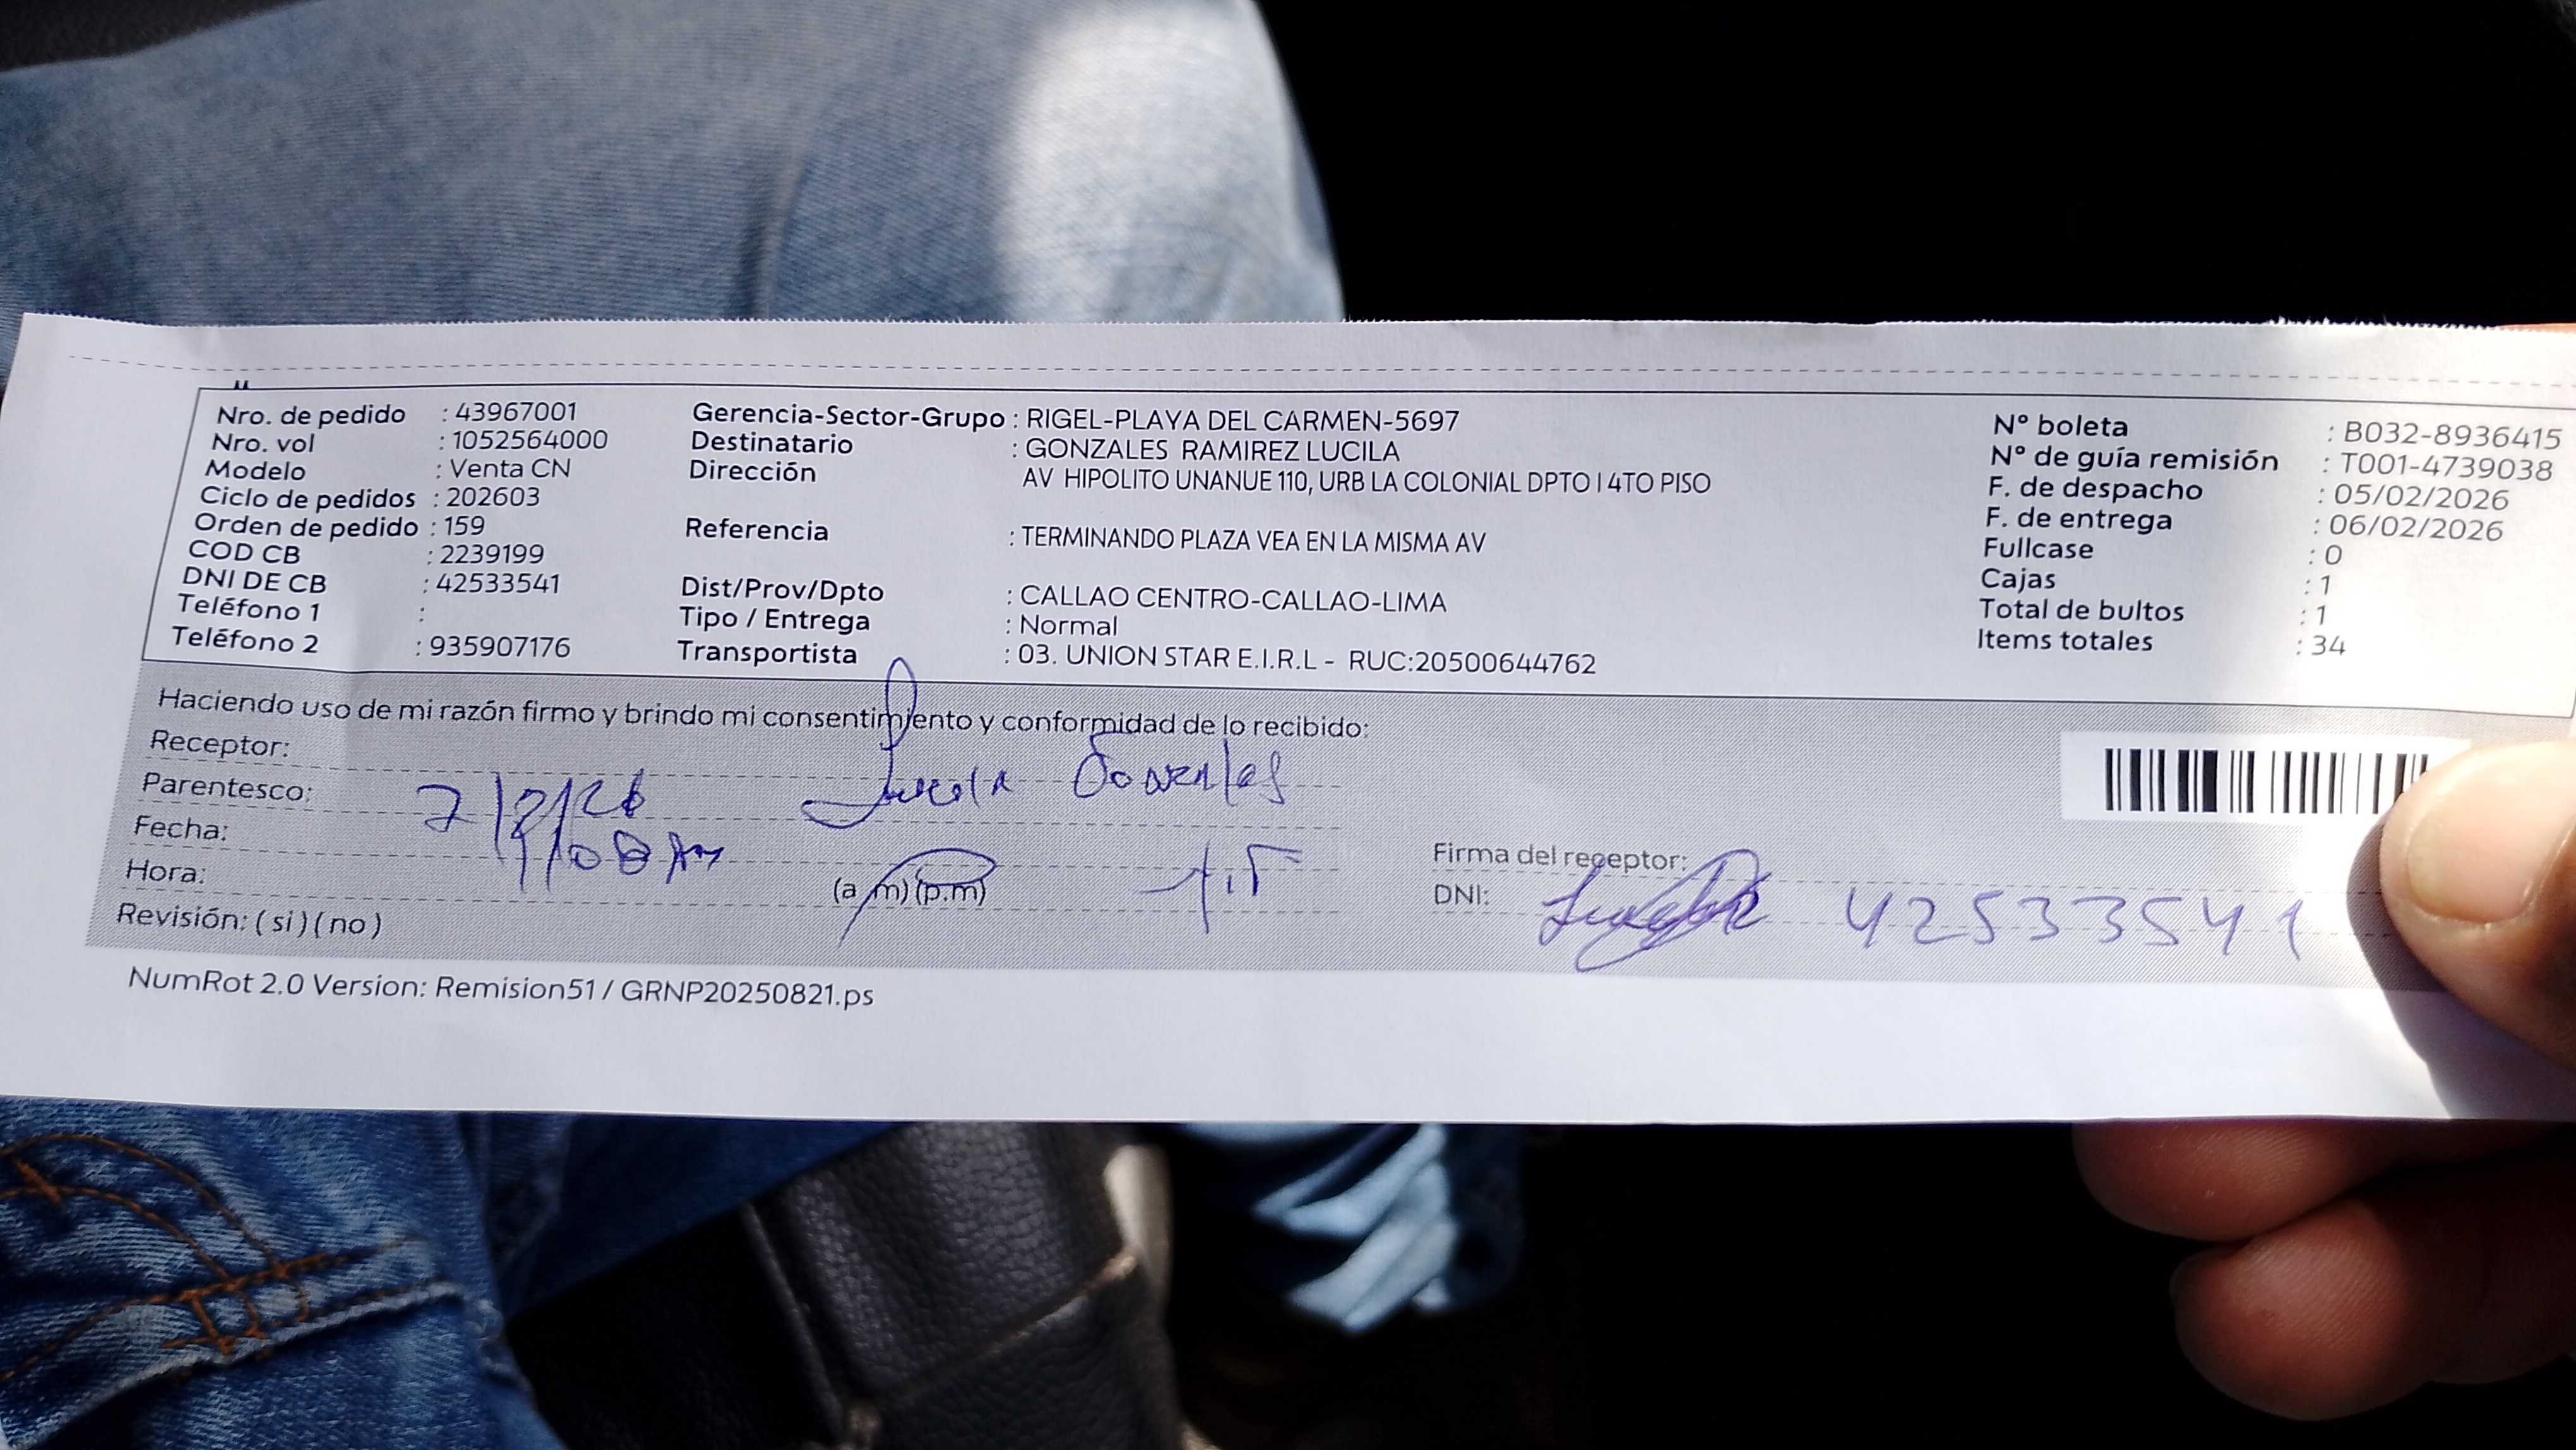 Nro. de pedido : 43967001
Nro. vol : 1052564000
Modelo : Venta CN
Ciclo de pedidos : 202603
Orden de pedido : 159
COD CB : 2239199
DNI DE CB : 42533541
Teléfono 1 :
Teléfono 2 : 935907176
Gerencia-Sector-Grupo : RIGEL-PLAYA DEL CARMEN-5697
Destinatario : GONZALES RAMIREZ LUCILA
Dirección AV HIPOLITO UNANUE 110, URB LA COLONIAL DPTO I 4TO PISO
Referencia : TERMINANDO PLAZA VEA EN LA MISMA AV
Dist/Prov/Dpto : CALLAO CENTRO-CALLAO-LIMA
Tipo / Entrega : Normal
Transportista : 03. UNION STAR E.I.R.L - RUC:20500644762
Nº boleta : B032-8936415
Nº de guía remisión : T001-4739038
F. de despacho : 05/02/2026
F. de entrega : 06/02/2026
Fullcase : 0
Cajas : 1
Total de bultos : 1
Items totales : 34
Haciendo uso de mi razón firmo y brindo mi consentimiento y conformidad de lo recibido:
Receptor:
Parentesco: 7/2/26
Fecha:
Hora: (a.m) (p.m)
Revisión: ( si ) ( no )
Firma del receptor:
DNI: 42533541
NumRot 2.0 Version: Remision51 / GRNP20250821.ps